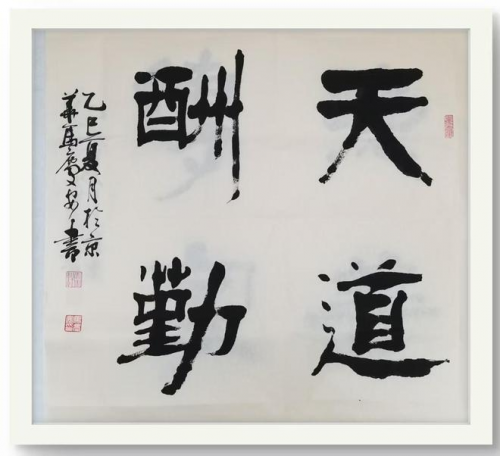 天道
酬勤
乙巳夏月於京
華馬慶安書